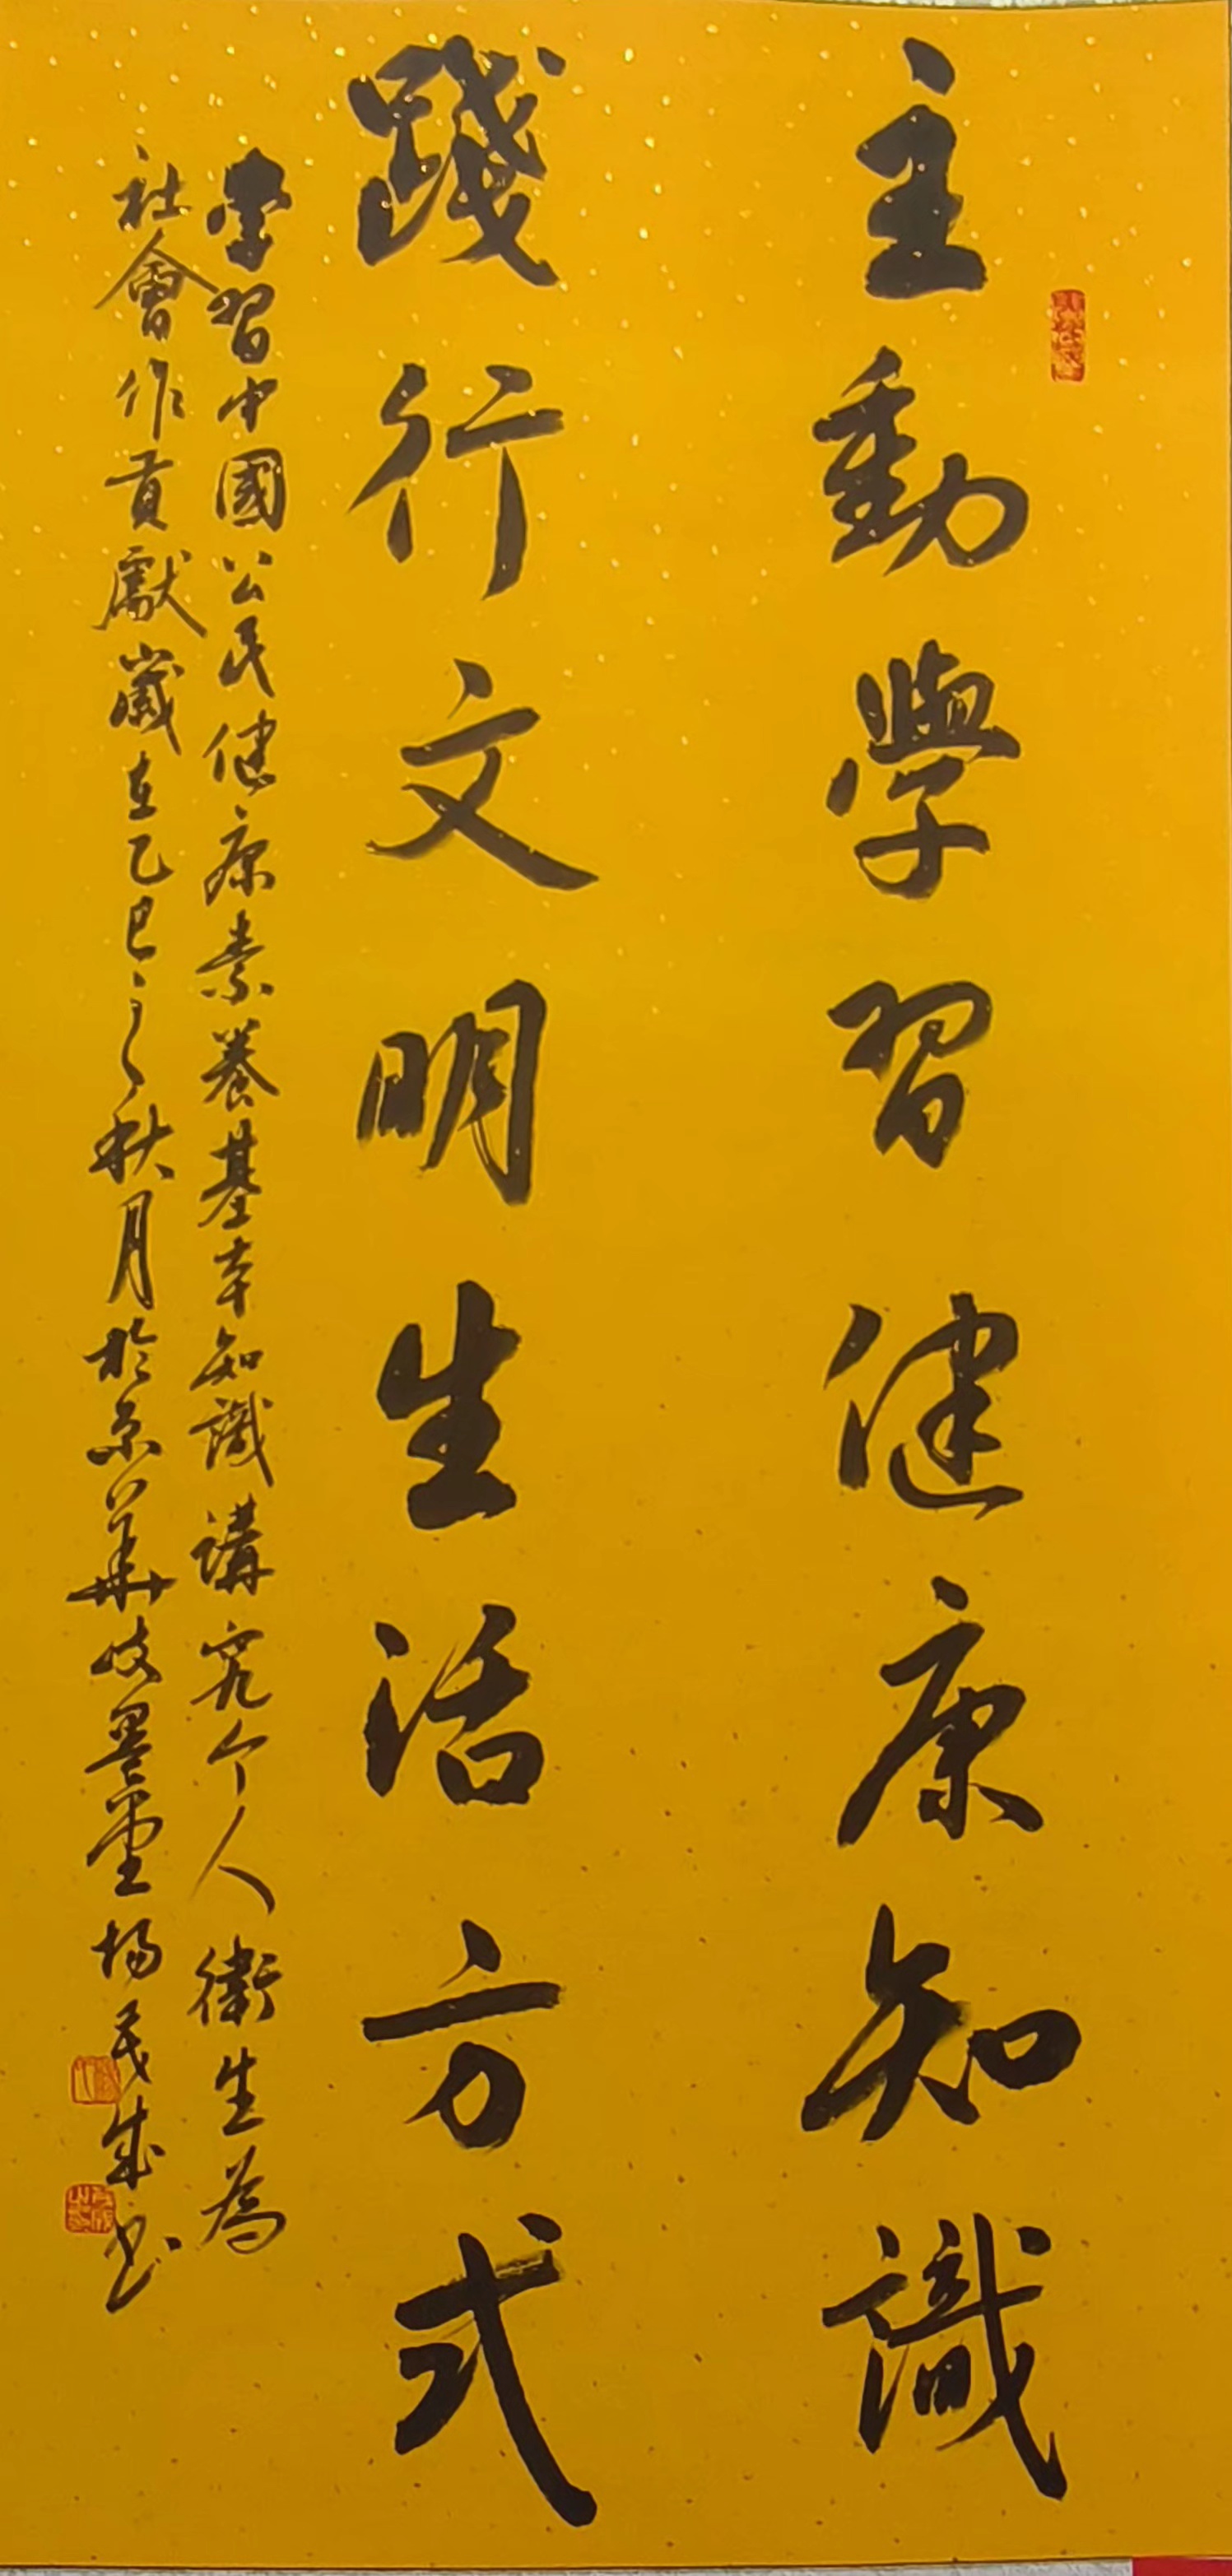 主動學習健康知識
踐行文明生活方式
學習中國公民健康素養基本知識講究个人衛生為
社會作貢獻歲在乙巳之秋月於京華 墨堂楊民成书